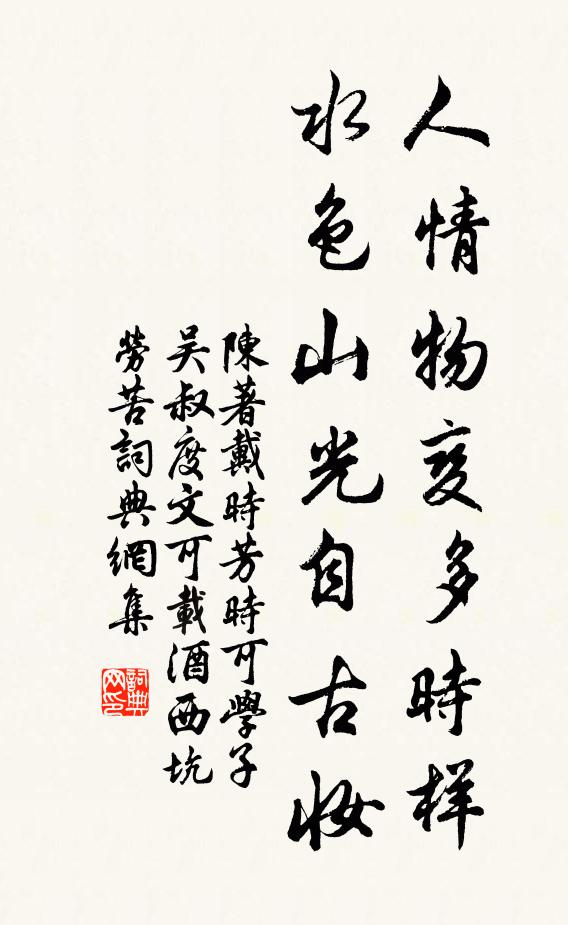 人情物变多時样
水色山光自古妆
陳著戴時芳時可學子
吴叔度文可載酒西坑
勞苦詞典網集
詞典网印